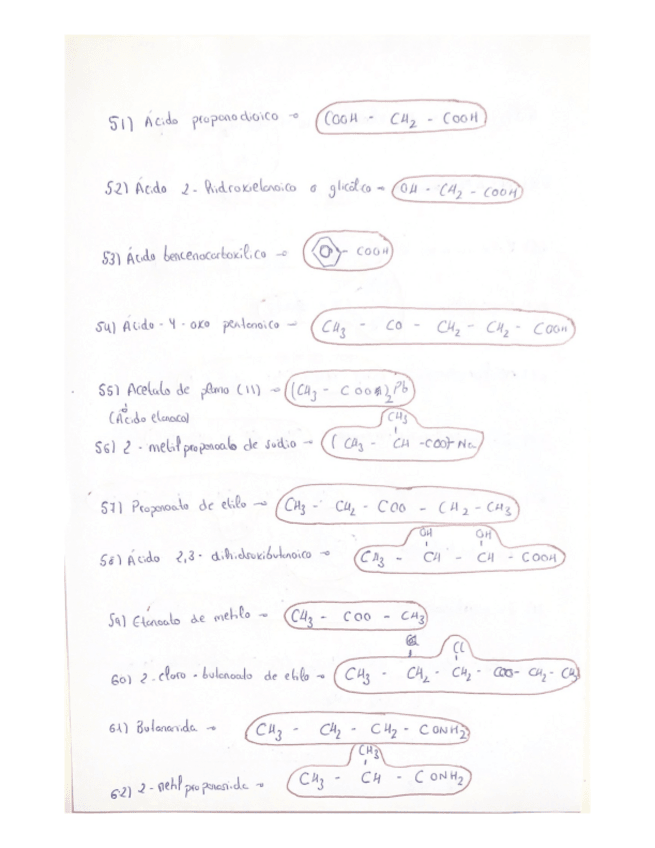 51) Ácido propanodioico → COOH - CH2 - COOH
52) Ácido 2-hidroxietanoico o glicólico → OH - CH2 - COOH
53) Ácido bencenocarboxílico → COOH
54) Ácido-4-oxo pentanoico → CH3 - CO - CH2 - CH2 - COOH
55) Acetato de plomo (II) → (CH3 - COO)2 Pb
(Ácido etanoico)
CH3
56) 2-metilpropanoato de sodio → (CH3 - CH - COO) Na
57) Propanoato de etilo → CH3 - CH2 - COO - CH2 - CH3
OH OH
58) Ácido 2,3-dihidroxibutanoico → CH3 - CH - CH - COOH
59) Etanoato de metilo → CH3 - COO - CH3
Cl
60) 2-cloro-butanoato de etilo → CH3 - CH2 - CH2 - COO - CH2 - CH3
61) Butanamida → CH3 - CH2 - CH2 - CONH2
CH3
62) 2-metilpropanamida → CH3 - CH - CONH2